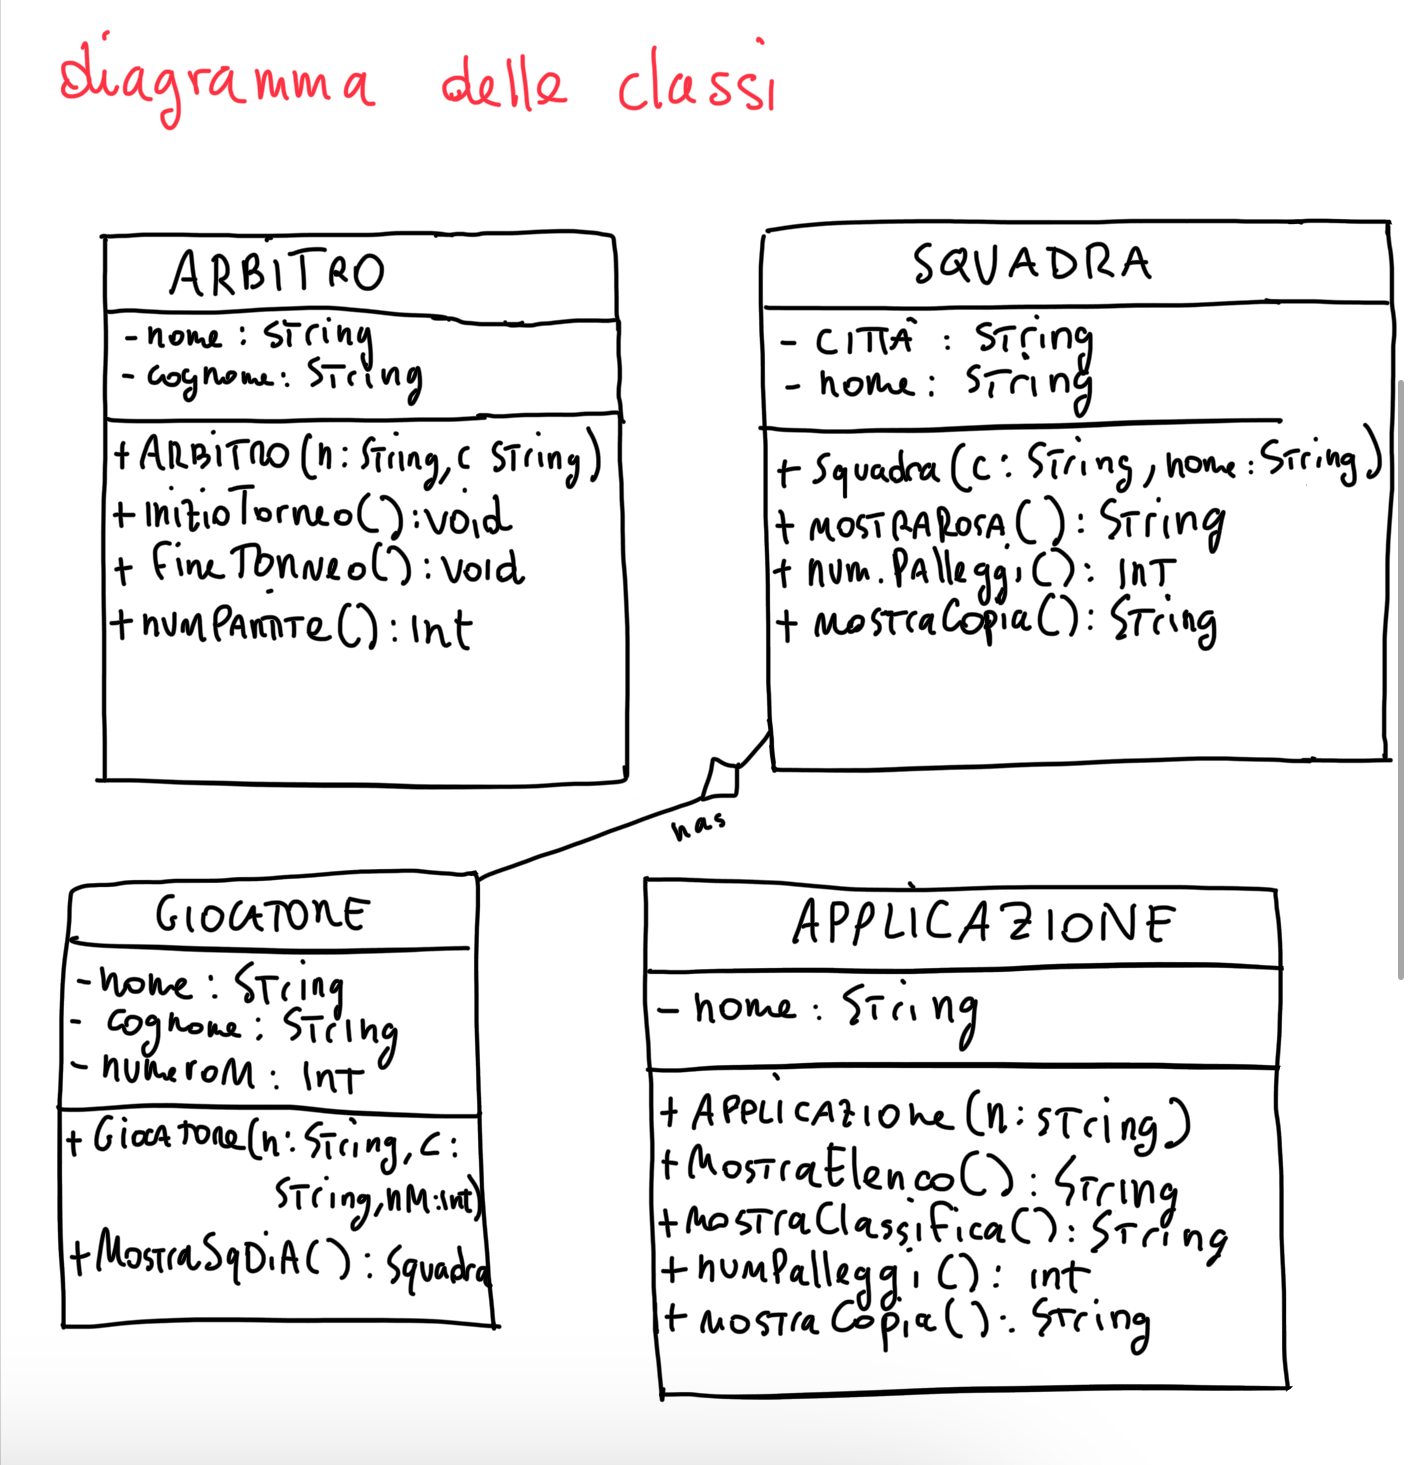 diagramma delle classi
ARBITRO
- nome : String
- cognome : String
+ ARBITRO (n : String, c String)
+ inizioTorneo() : void
+ fineTORNEO() : void
+ numPARTITE() : Int
SQUADRA
- CITTÀ : String
- nome : String
+ Squadra (c : String, nome : String)
+ MOSTRAROSA() : String
+ num.PAlleggi() : INT
+ mostraCopia() : String
has
GIOCATORE
- nome : String
- cognome : String
- numeroM : INT
+ GIOCATORE (n : String, c :
String, nM : int)
+ MostraSqDiA() : Squadra
APPLICAZIONE
- nome : String
+ APPLICAZIONe (n : String)
+ MostraElenco() : String
+ mostraClassifica() : String
+ numPalleggi() : int
+ mostraCopia() : String